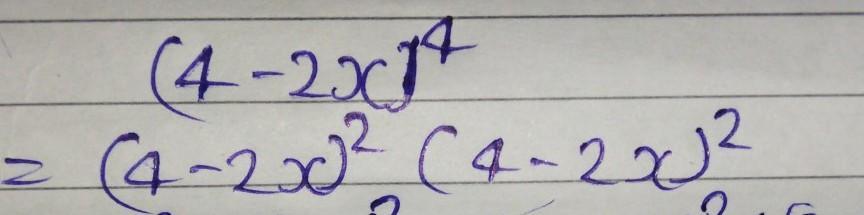 (4-2x)⁴
= (4-2x)² (4-2x)²